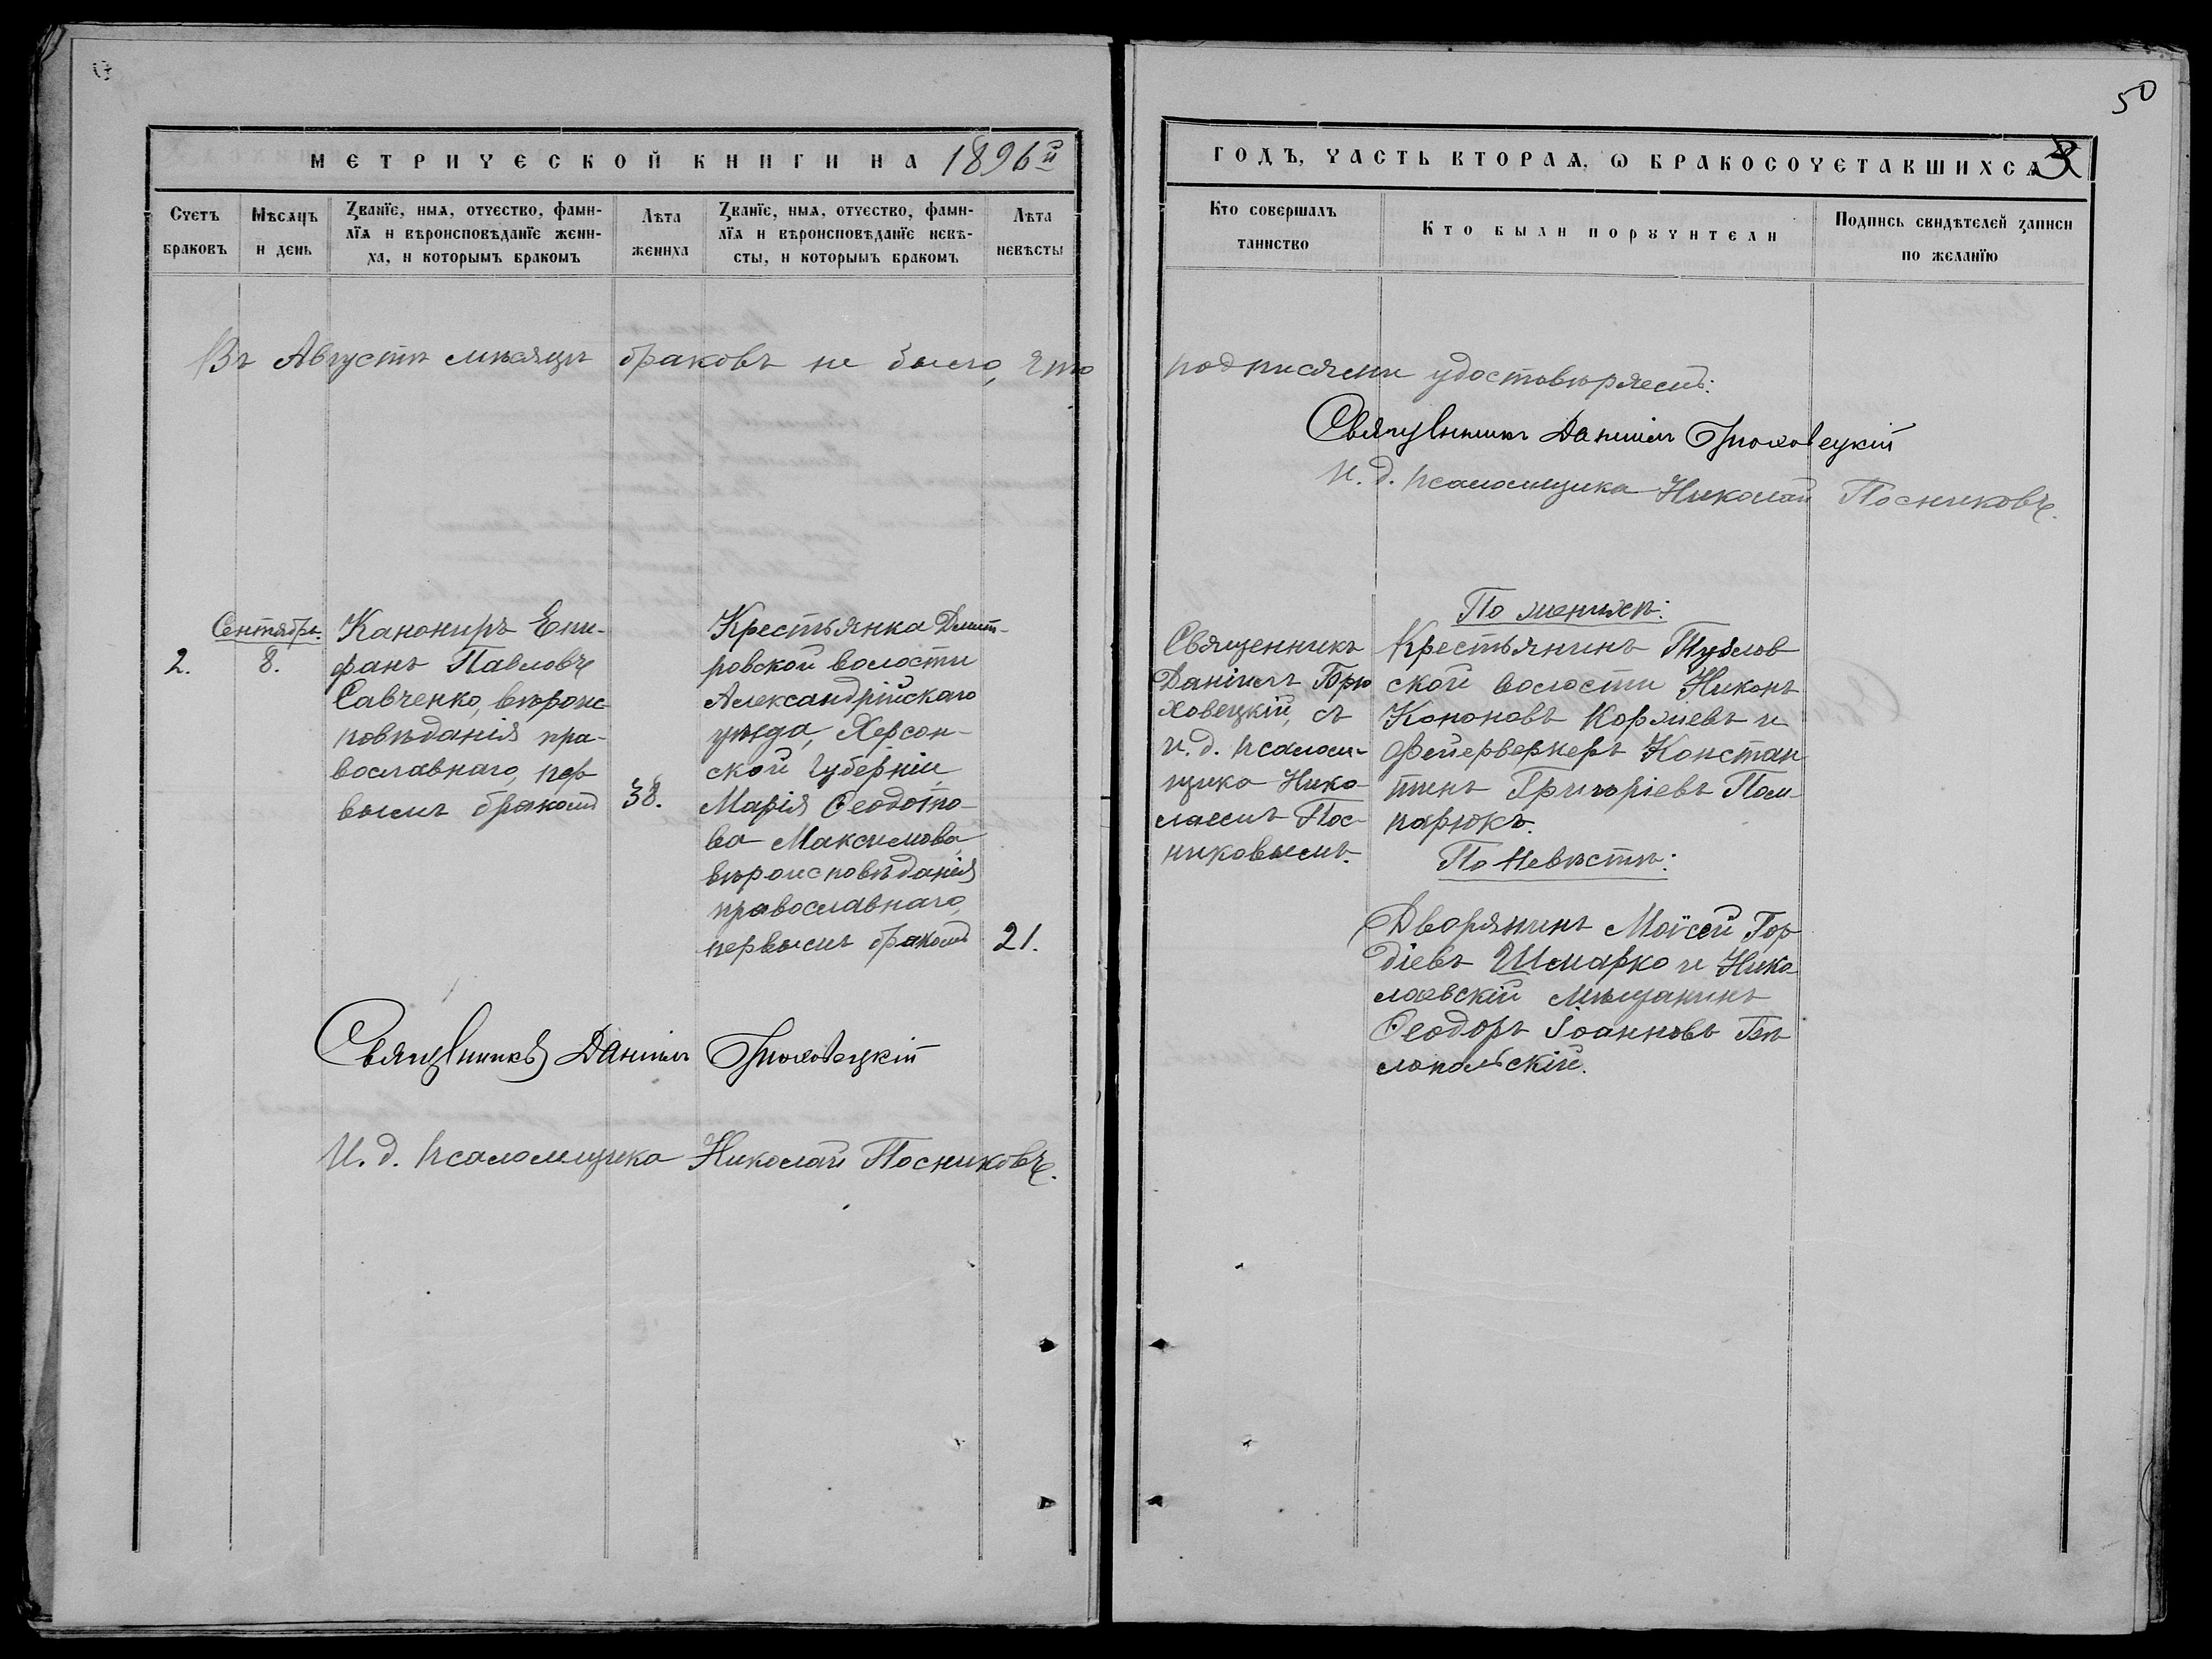 50
МЕТРИЧЕСКОЙ КНИГИ НА 1896й
ГОДЪ, ЧАСТЬ ВТОРАѦ, Ѡ БРАКОСОЧЕТАВШИХСѦ 3
Счетъ браковъ
Мѣсѧцъ и день
Званїе, имѧ, отчество, фами-
лїѧ и вѣроисповѣданїе жени-
ха, и которымъ бракомъ
Лѣта жениха
Званїе, имѧ, отчество, фами-
лїѧ и вѣроисповѣданїе невѣ-
сты, и которымъ бракомъ
Лѣта невѣсты
Кто совершалъ
таинство
Кто были порꙋчители
Подпись свидѣтелей записи
по желанїю
Въ Августѣ мѣсяцѣ браковъ не было, что
подписями удостовѣряемъ:
Священникъ Даниилъ Брюховецкій
И. д. псаломщика Николай Посниковъ.
2.
Сентябрь.
8.
Канониръ Епи-
фанъ Павловъ
Савченко, вѣроис-
повѣданія пра-
вославнаго, пер
вымъ бракомъ
38.
Крестьянка Дмит-
ровской волости
Александрійскаго
уѣзда, Херсон-
ской губерніи
Марія Ѳеодото-
ва Максимова,
вѣроисповѣданія
православнаго,
первымъ бракомъ
21.
Священникъ Даніилъ Брюховецкій
И. д. псаломщика Николай Посниковъ.
Священникъ
Даніилъ Брю
ховецкій, съ
и. д. псалом-
щика Нико-
лаемъ Пос-
никовымъ.
По женихѣ:
Крестьянинъ
ской волости Никонъ
Кононовъ и
Фейерверкеръ Констан
тинъ Григоріевъ Пом-
парюкъ.
По Невѣстѣ:
Дворянинъ Моѵсей Гор
діевъ Шмарко и Нико
лаевскій мѣщанинъ
Ѳеодоръ Іоанновъ Бѣ
лопольскій.